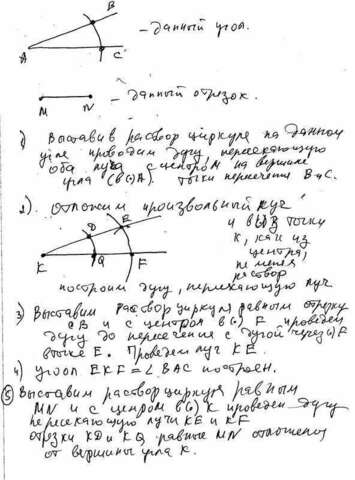 B
A C
- данный угол.
M N - данный отрезок.
1) Выставив раствор циркуля на данном
угле проводим дугу, пересекающую
оба луча с центром на вершине
угла (в (·) A). точки пересечения B и C.
2). Отложим произвольный луч
и в (·) точки
K, как из
центра,
не меняя
раствор
K D E Q F
построим дугу, пересекающую луч
3) Выставим раствор циркуля равным отрезку
CB и с центром в (·) F проведем
дугу до пересечения с дугой через (·) F
E. Проведем луч KE.
4) угол EKF = ∠ BAC построен.
⑤ Выставим раствор циркуля равным
MN и с центром в (·) K проведем дугу
пересекающую лучи KE и KF
отрезки KD и KQ равные MN
от вершины угла K.